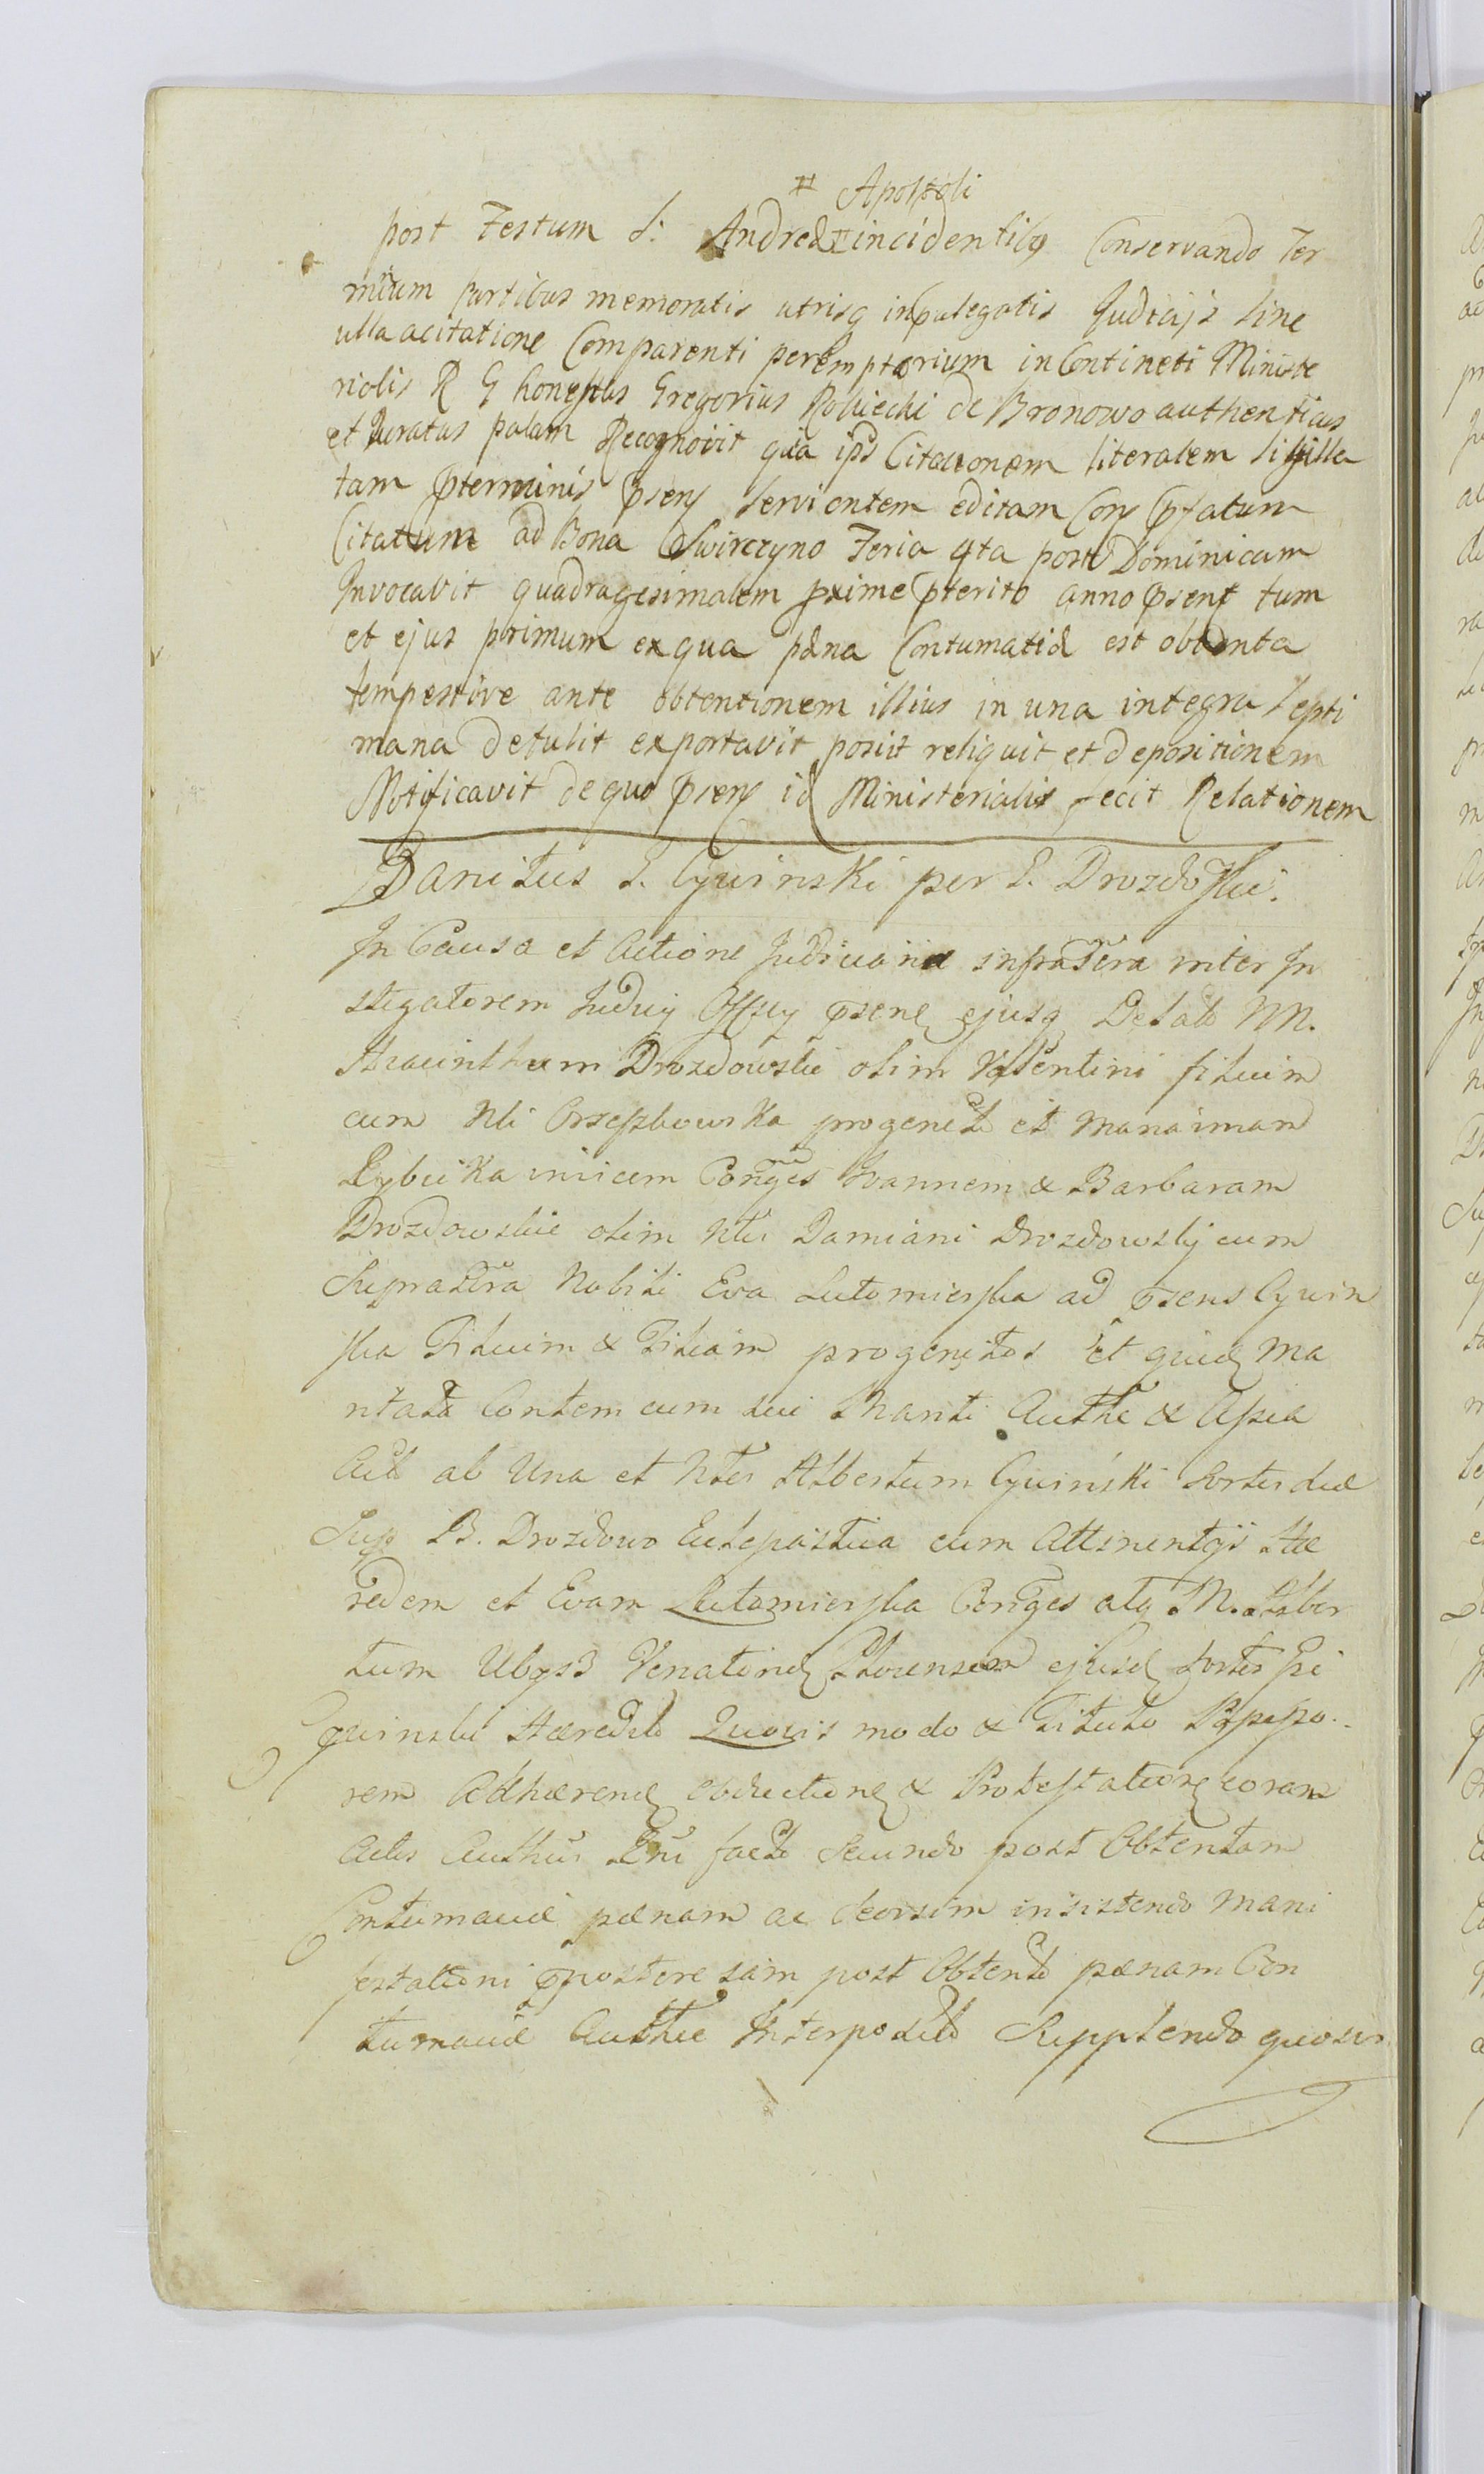 # Apostoli
post Festum S: Andreæ # incidentibq Conservando Ter
minum Partibus memoratis utrisq in Judicijs sine
ulla acitatione Comparenti peremptorium in Contineti Ministe
rialis R G honestus Gregorius Robiecki de Bronowo authenticus
et Juratus palam Recognovit quia ips Citationem literalem sigilla
tam pterminis psens servientem editam Con pfatum
Citatum ad Bona Swirczyno Feria 4ta post Dominicam
Invocavit quadragesimalem proxime pterito anno psent tum
et ejus primum ex qua pæna Contumatiæ est obtenta
tempestive ante obtentionem illius in una integra septi
mana detulit exportavit posuit reliquit et depositionem
Notificavit de quo psens id Ministerialis fecit Relationem
Danitus S. Cywinski per S. Drozdoskie.
In Causa et Actione Judiciaria infrascra inter In
stigatorem Judicij Offcij psens ejusq Delato NN.
Hiacinthum Drozdowskie olim Valentini filium
cum Nli progenito et Mariannam
Rybicka invicem Conges Ioannem & Barbaram
Drozdowskie olim Nlis Damiani Drozdowskj cum
Suprascra Nobili Eva Lutomierska ad psens Cywin
ska Filium & Filiam progenitos et quidem Ma
ritata Contem cum sui Mariti Authe & Assa
Act ab Una et Nles Albertum Cywiński Sortis suæ
Sup B. Drozdowo cum Attinentijs Hæ
redem et Evam Lutomierska Conges atq M. Alber
tum Venatorem ejusd Sortis
Cywinskie Hæredit Quovis modo & Titulo
rem Adhærend obductione & Protestatione coram
Actis Authis facto Secundo post Obtentam
Contumaciæ pænam ac seorsim insistendo Mani
festationi post Obtento pænam Con
tumaciæ Authe Interposito Supplendo quosvis